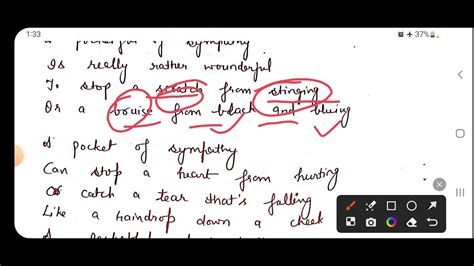 1:33
37%
a pocketful of sympathy
Is really rather wounderful
To stop a scratch from stinging
Or a bouise from black and bluing
A pocket of sympathy
Can stop a heart from hurting
Or catch a tear that's falling
Like a raindrop down a cheek